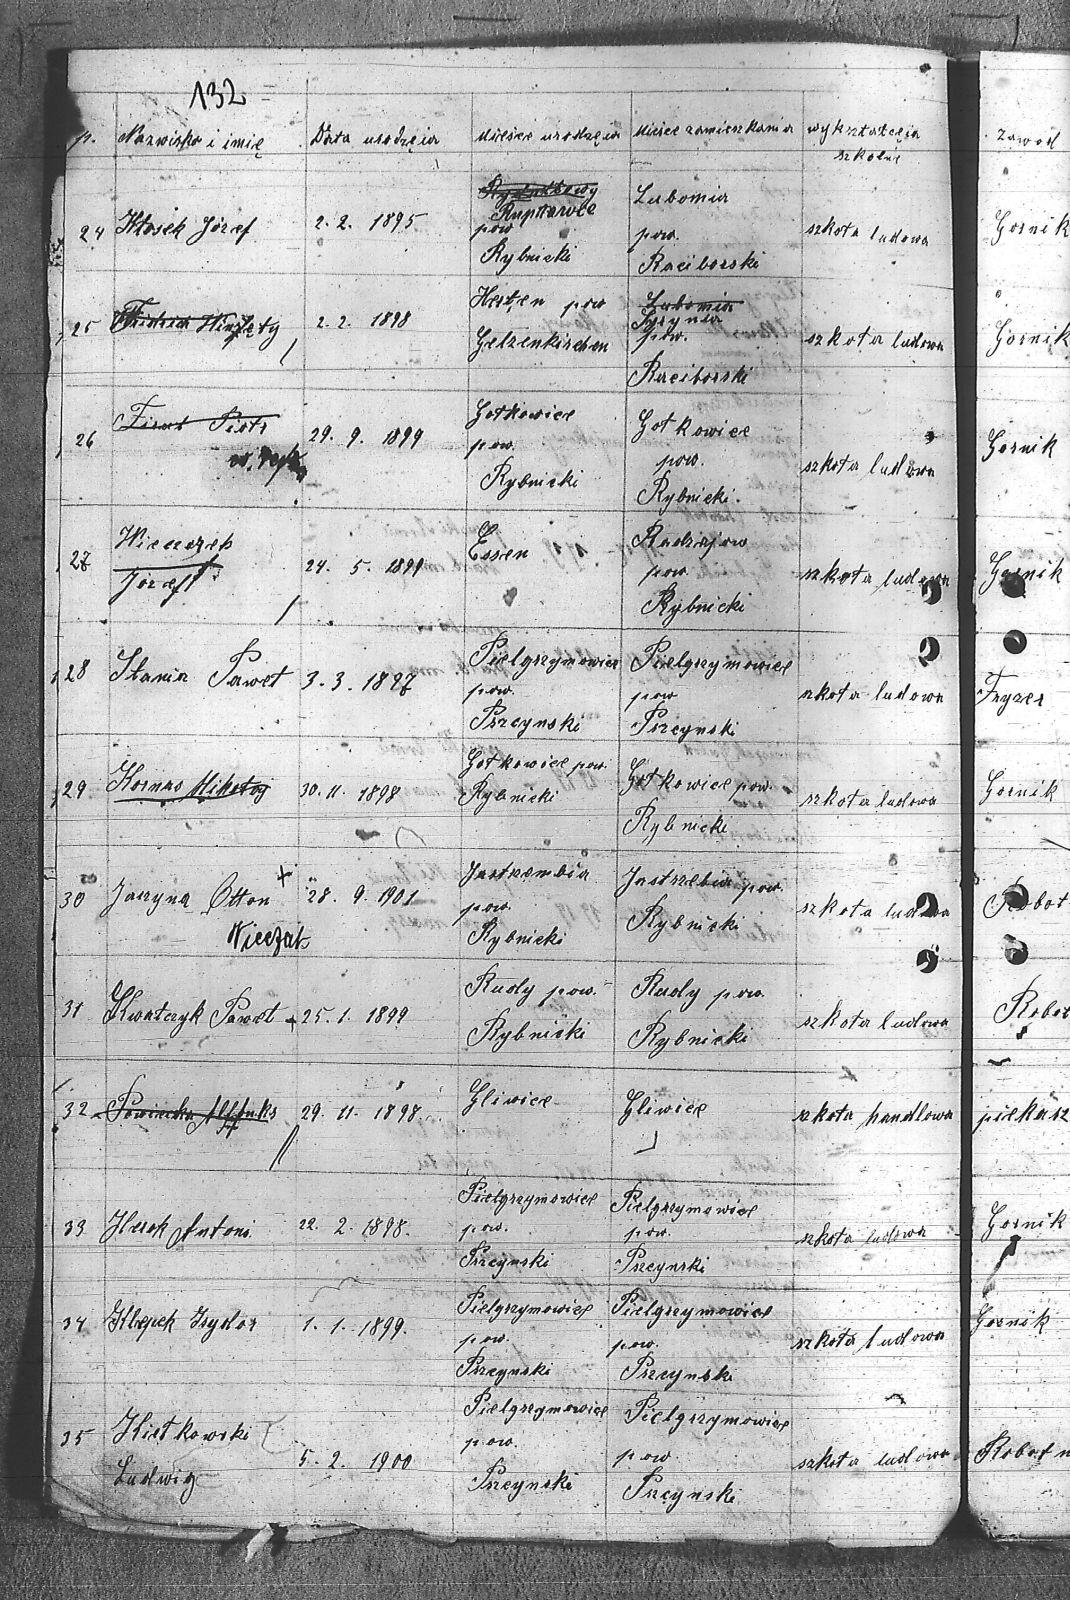 132
p. Nazwisko i imię Data urodzęia Miejsce urodzęia Miejsce zamieszkania wykształcęia szkolne zawod
24 Kłosek Józef 2. 2. 1895 Ruptawiec pow. Rybnicki Lubomia pow. Raciborski szkoła ludowa Gornik
25 2. 2. 1898 Herten pow Gelzenkirchen Lubomia Syrynia pow. Raciborski szkoła ludowa Gornik
26 Piotr 29. 9. 1899 Gołkowice pow. Rybnicki Gołkowice pow. Rybnicki. szkoła ludowa Gornik
27 Wieczorek Józef 24. 5. 1899 Essen Radziejow pow. Rybnicki szkoła ludowa Gornik
28 Stania Paweł 3. 3. 1897 Pielgrzymowice pow. Pszczynski Pielgrzymowice pow. Pszczynski szkoła ludowa Fryzer
29 Kosmas Mikołaj 30. 11. 1898 Gołkowice pow. Rybnicki Gołkowice pow. Rybnicki szkoła ludowa Gornik
30 Jarzyna Otton 28. 9. 1901 Jastrzembia pow. Rybnicki Jastrzebia pow. Rybnicki szkoła ludowa Robot
31 Kwatczyk Paweł 25. 1. 1899 Rudy pow. Rybnicki Rudy pow. Rybnicki szkoła ludowa Robot
32 29. 11. 1898. Gliwice Gliwice szkoła handlowa piekasz
33 Antoni 22. 2. 1898. Pielgrzymowice pow. Pszczynski Pielgrzymowice pow. Pszczynski szkoła ludowa Gornik
34 Klepek Izydor 1. 1. 1899. Pielgrzymowice pow. Pszczynski Pielgrzymowice pow. Pszczynski szkoła ludowa Gornik
35 Kietkowski Ludwig 5. 2. 1900 Pielgrzymowice pow. Pszczynski Pielgrzymowice pow Pszczynski szkoła ludowa Robotn